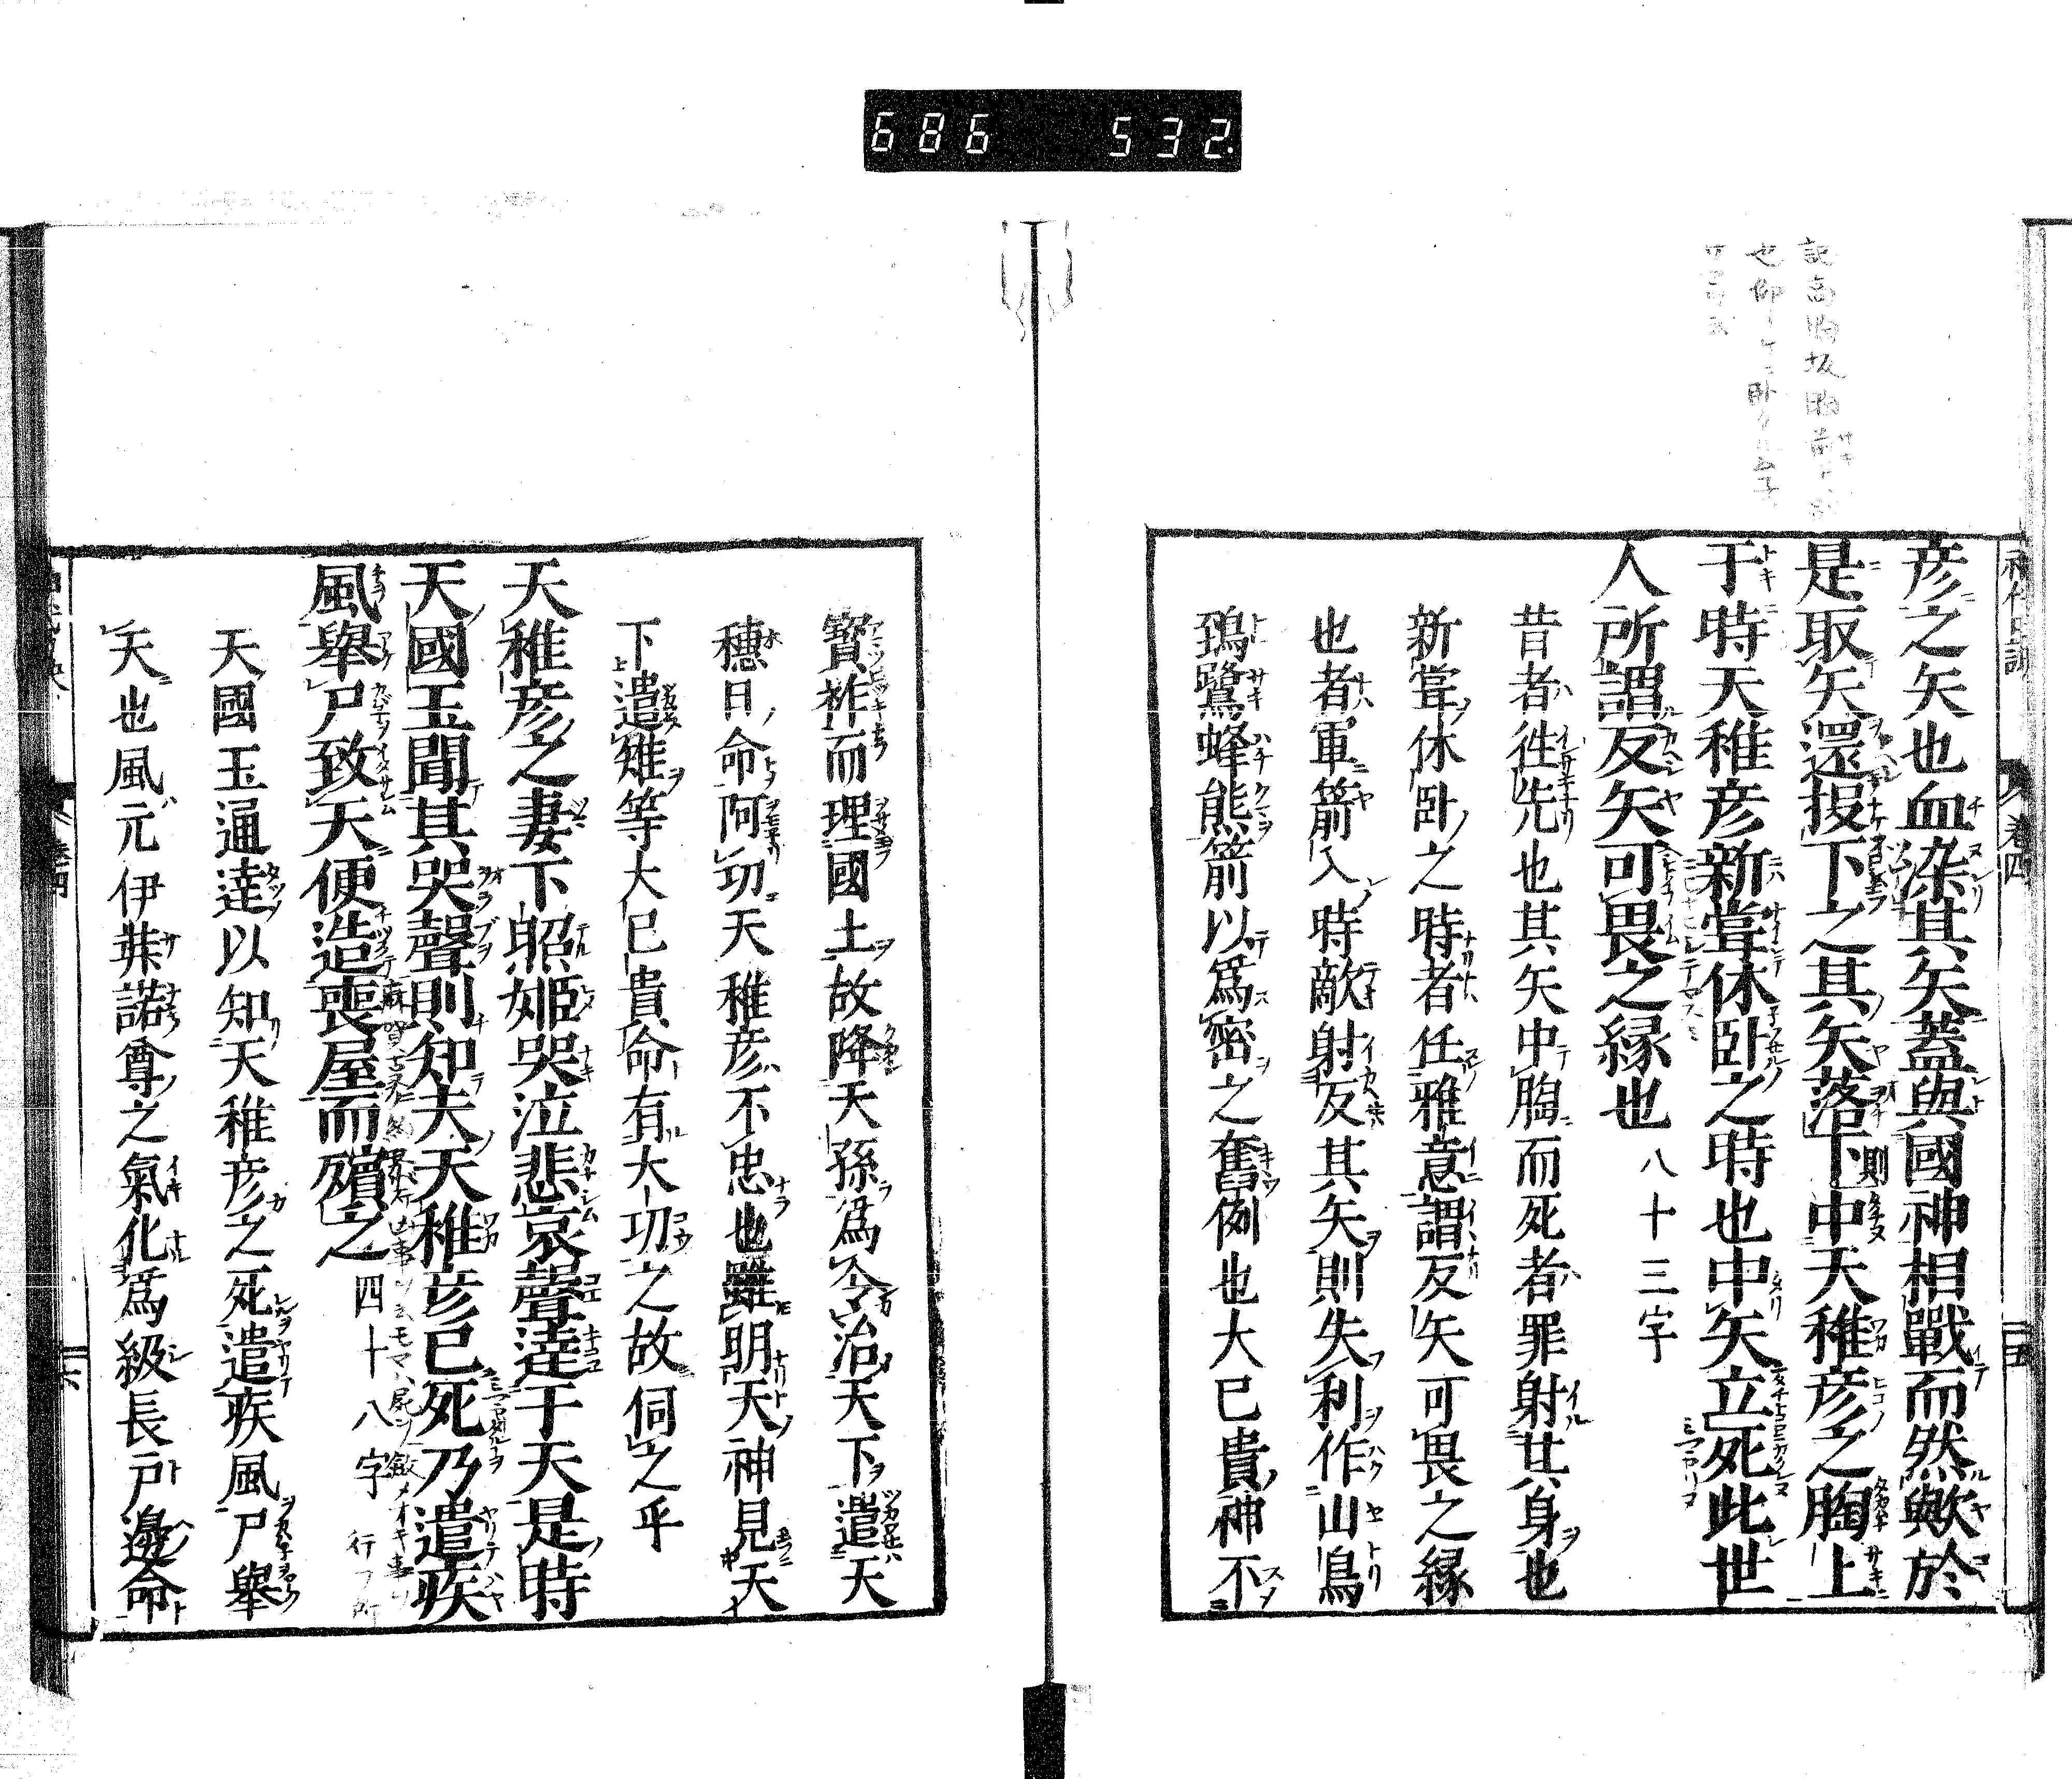 686 532
彦之矢也血染其矢蓋與國神相戰而然歟於
是取矢還投下之其矢落下則中天稚彦之胸上
于時天稚彦新甞休卧之時也中矢立死此世
人所謂反矢可畏之縁也 八十三字
昔者徃先也其矢中胸而死者罪射其身也
新甞休卧之時者任雅意謂反矢可畏之縁
也者軍箭入時敵射反其矢則失利作山鳥
鵄鷺蜂熊箭以爲密之奮例也大已貴神不
寳祚而理國土故降天孫爲令治天下遣天
穗日命阿切天稚彦不忠也雖明天神見天
下遣雉等大已貴命有大功之故伺之乎
天稚彦之妻下照姬哭泣悲哀聲達于天是時
天國玉聞其哭聲則知夫天稚彦已死乃遣疾
風舉尸致天便造喪屋而殯之 四十八字
天國玉通達以知天稚彦之死遣疾風尸舉
天也風元伊弉諾尊之氣化爲級長戸邊命
卷四